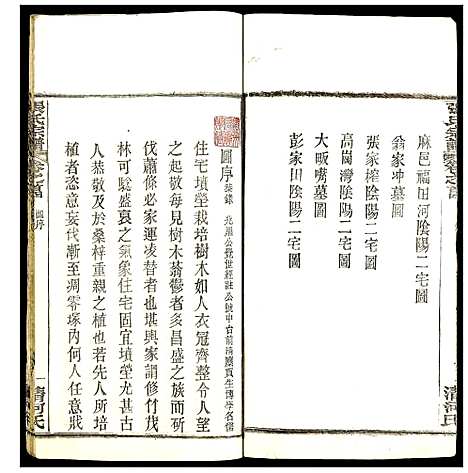 張氏宗譜
卷之首
麻邑福田河陰陽二宅圖
翁家冲墓圖
張家榨陰陽二宅圖
高崗灣陰陽二宅圖
大畈嘴墓圖
彭家田陰陽二宅圖
清河氏
圖序
住宅墳塋栽培樹木如人衣冠齊整令人瞻
之起敬每見樹木蓊鬱者多昌盛之族而斫
伐蕭條必運凌替者也堪與家謂修竹茂
林可騐盛衰之氣象住宅固宜墳塋尤甚古
人恭敬及於桑梓重親之植也若先人所培
植者恣意妄伐漸至凋零塚內何人任意戕
張氏宗譜
卷之首
圖序
清河氏